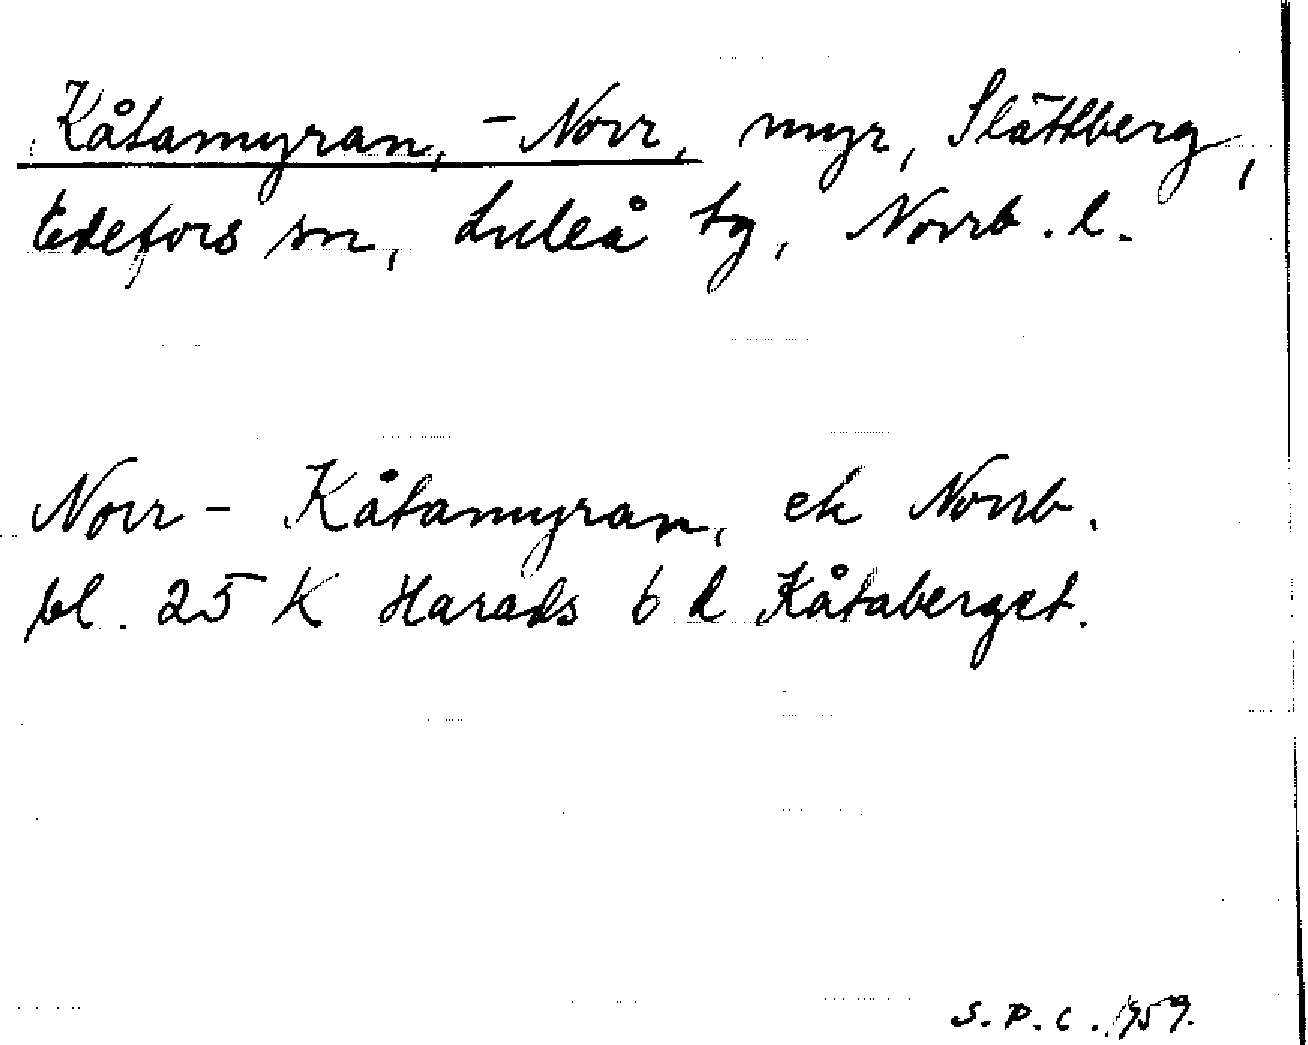 Kåtamyran, - Norr, myr, Slättberg,
Edefors sn, Luleå tg, Norrb. l.
Norr - Kåtamyran, ek Norrb.
bl. 25 K Harads 6 d Kåtaberget.
S.P.C. 1959.